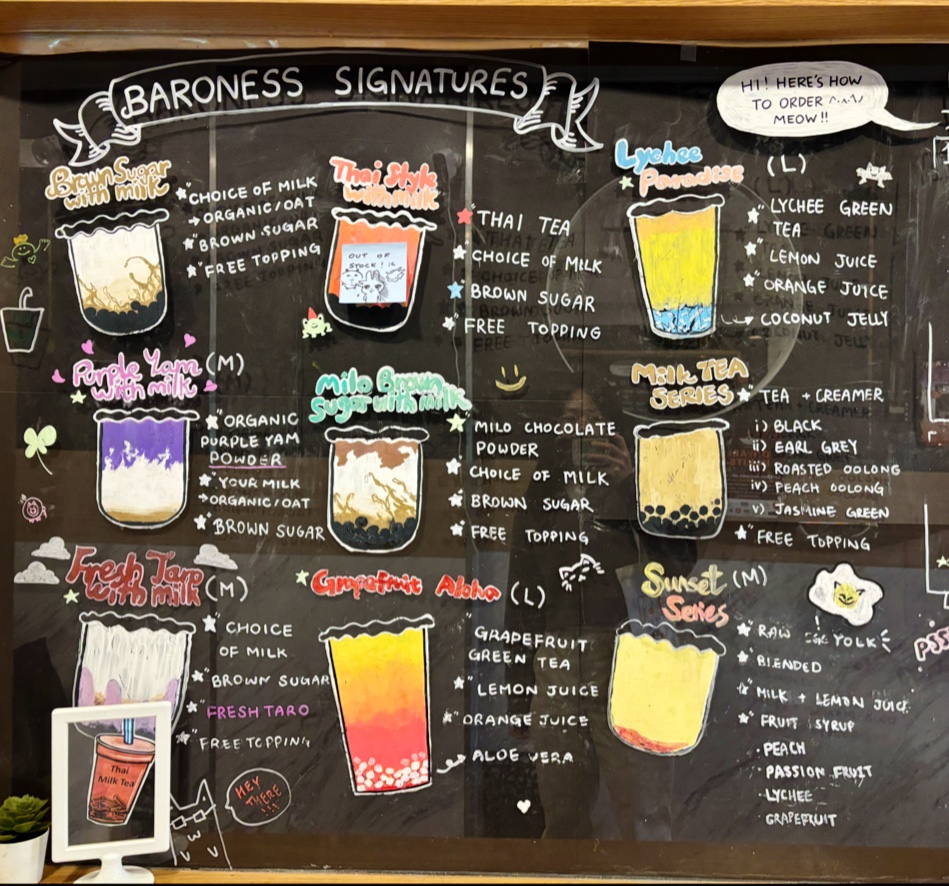 BARONESS SIGNATURES
HI! HERE'S HOW
TO ORDER
MEOW!!
Brown Sugar
with milk
CHOICE OF MILK
→ ORGANIC/OAT
BROWN SUGAR
FREE TOPPING
Thai Style
with milk
OUT OF
STOCK!
THAI TEA
CHOICE OF MILK
BROWN SUGAR
FREE TOPPING
Lychee
Paradise
(L)
LYCHEE GREEN
TEA
LEMON JUICE
ORANGE JUICE
COCONUT JELLY
Purple Yam (M)
with milk
ORGANIC
PURPLE YAM
POWDER
YOUR MILK
→ ORGANIC/OAT
BROWN SUGAR
Milo Brown
Sugar with milk
MILO CHOCOLATE
POWDER
CHOICE OF MILK
BROWN SUGAR
FREE TOPPING
Milk TEA
SERIES
TEA + CREAMER
i) BLACK
ii) EARL GREY
iii) ROASTED OOLONG
iv) PEACH OOLONG
v) JASMINE GREEN
FREE TOPPING
Fresh Taro
with milk (M)
CHOICE
OF MILK
BROWN SUGAR
FRESH TARO
FREE TOPPING
Thai
Milk Tea
HEY
THERE
!!!
Grapefruit Aloha (L)
GRAPEFRUIT
GREEN TEA
LEMON JUICE
ORANGE JUICE
ALOE VERA
Sunset (M)
Series
RAW EGG YOLK
BLENDED
MILK + LEMON JUICE
FRUIT SYRUP
· PEACH
· PASSION FRUIT
· LYCHEE
GRAPEFRUIT